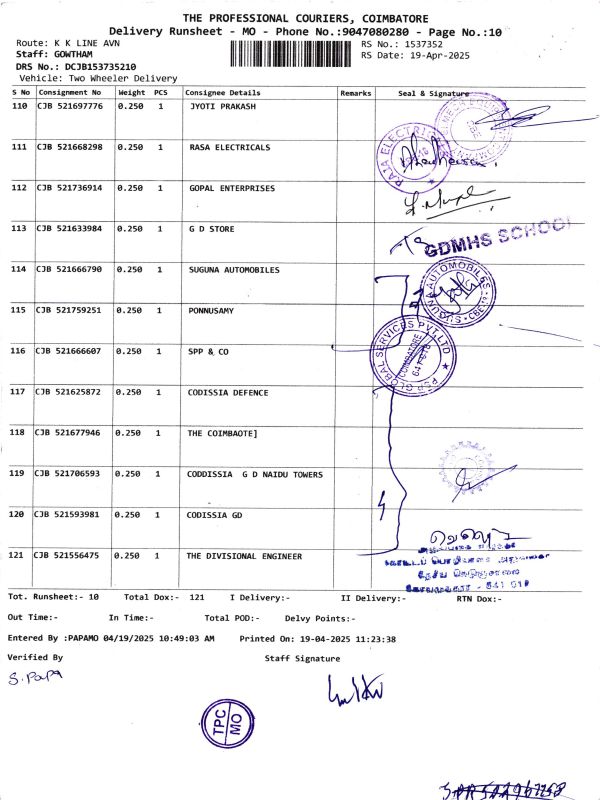 THE PROFESSIONAL COURIERS, COIMBATORE
Delivery Runsheet - MO - Phone No.:9047080280 - Page No.:10
Route: K K LINE AVN
RS No.: 1537352
Staff: GOWTHAM
RS Date: 19-Apr-2025
DRS No.: DCJB153735210
Vehicle: Two Wheeler Delivery
S No Consignment No Weight PCS Consignee Details Remarks Seal & Signature
110 CJB 521697776 0.250 1 JYOTI PRAKASH
111 CJB 521668298 0.250 1 RASA ELECTRICALS
RAJA ELECTRICALS
112 CJB 521736914 0.250 1 GOPAL ENTERPRISES
113 CJB 521633984 0.250 1 G D STORE
GDMHS SCHOOL
114 CJB 521666790 0.250 1 SUGUNA AUTOMOBILES
SUGUNA AUTOMOBILES
115 CJB 521759251 0.250 1 PONNUSAMY
116 CJB 521666607 0.250 1 SPP & CO
GLOBAL SERVICES PVT.LTD
COIMBATORE
641 018
117 CJB 521625872 0.250 1 CODISSIA DEFENCE
118 CJB 521677946 0.250 1 THE COIMBAOTE]
119 CJB 521706593 0.250 1 CODDISSIA G D NAIDU TOWERS
120 CJB 521593981 0.250 1 CODISSIA GD
121 CJB 521556475 0.250 1 THE DIVISIONAL ENGINEER
Tot. Runsheet:- 10 Total Dox:- 121 I Delivery:- II Delivery:- RTN Dox:-
Out Time:- In Time:- Total POD:- Delvy Points:-
Entered By :PAPAMO 04/19/2025 10:49:03 AM Printed On: 19-04-2025 11:23:38
Verified By Staff Signature
S. PaPa
TPC
MO